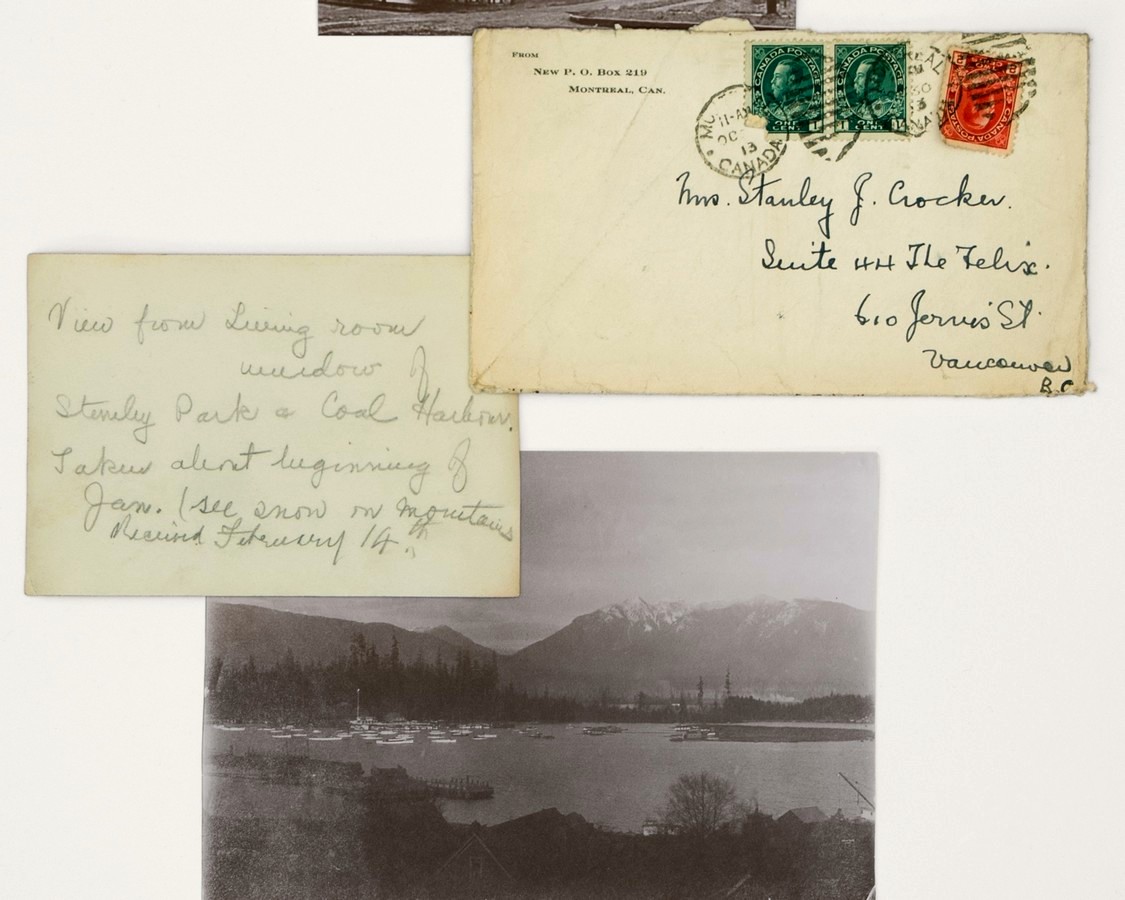 FROM
NEW P. O. BOX 219
MONTREAL, CAN.
CANADA POSTAGE
ONE CENT 1
CANADA POSTAGE
1 ONE CENT
CANADA POSTAGE
11-AM
OC
13
CANADA
Mrs. Stanley J. Crocker.
Suite 44 The Felix.
610 Jervis St.
Vancouver
B.C.
View from Living room
window of
Stanley Park & Coal Harbour.
Taken about beginning of
Jan. (see snow on mountains
Received February 14th.